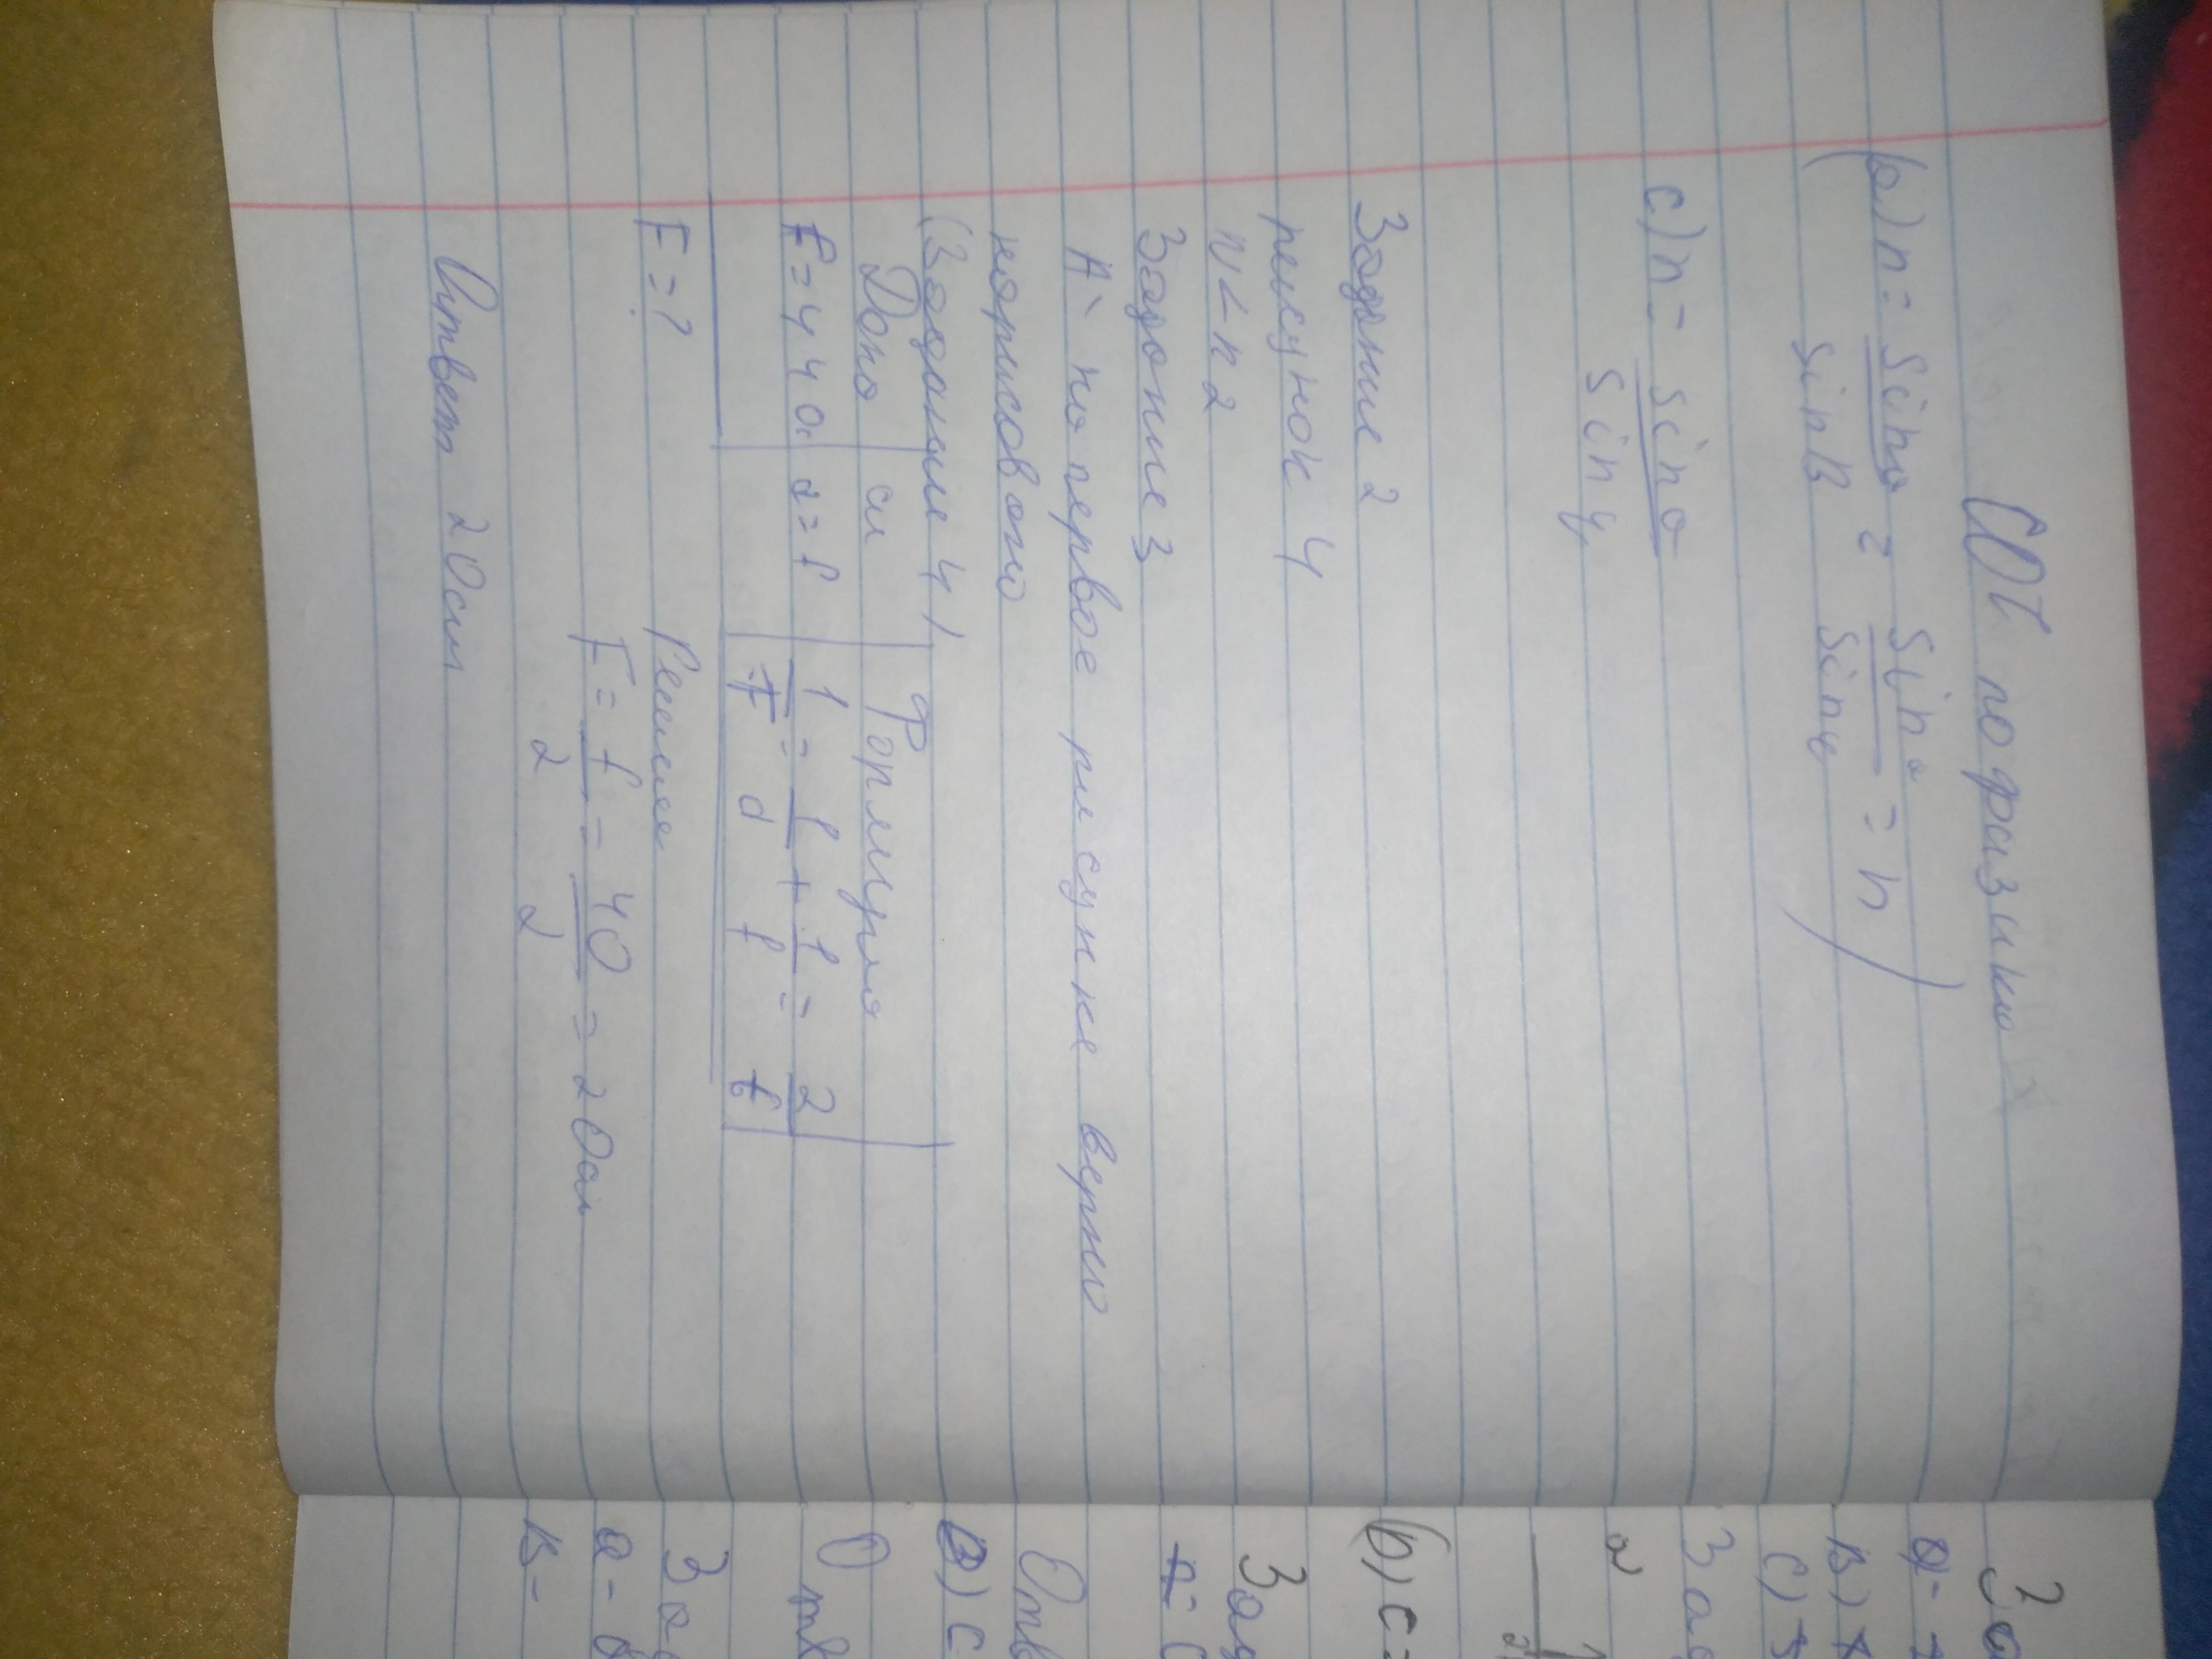 СОЧ по физике
b) n = sin α / sin β = sin α / sin γ = n)
c) n = sin α / sin γ
Задание 2
рисунок 4
n < n2
Задание 3
А - на первое рисунке верно
нарисовано
(Задание 4)
Дано си Формула
f = 440. d = f 1/F = 1/d + 1/f = 2/f
F = ?
Решен
F = f/2 = 40/2 = 20см
Ответ 20см
За
a -
B)
c)
Зад
a
b) c =
Зад
Отв
B) c
Отв
Зад
a -
B -